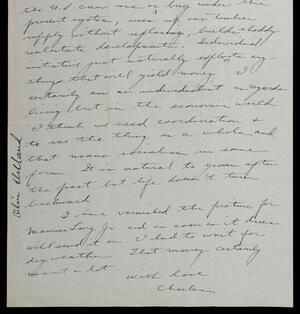 the U.S. can use or buy under the
present system, uses up our timber
supply without replacing, builds shoddy
real estate developments. Individual
initiative just naturally exploits any-
thing that will yield money. I
certainly am an individualist as regards
living but in the economic world
I think we need coordination &
to see the thing as a whole and
that means socialism in some
form. It is natural to yearn after
the past but life doesn't turn
backward.
I have varnished the picture for
Maurice Long, Jr. and as soon as it dries
will send it on. I had to wait for
dry weather. That money certainly
meant a lot.
With love
Charles